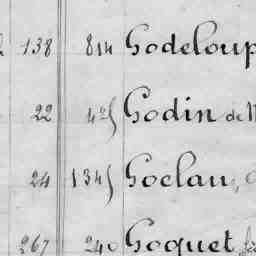 138 814 Godeloup
22 425 Godin de
24 1345 Goelau,
267 240 Goquet